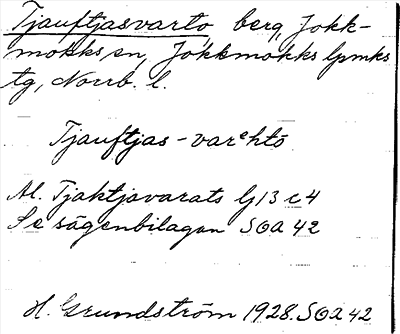 Tjauftjasvarto berg, Jokk-
mokks sn, Jokkmokks lpmks
tg, Norrb. l.
Tjauftjas-varᵉhtō
Al. Tjaktjavarats lj 13 c 4
Se sägenbilagan SOA 42
H. Grundström 1928. SOA 42